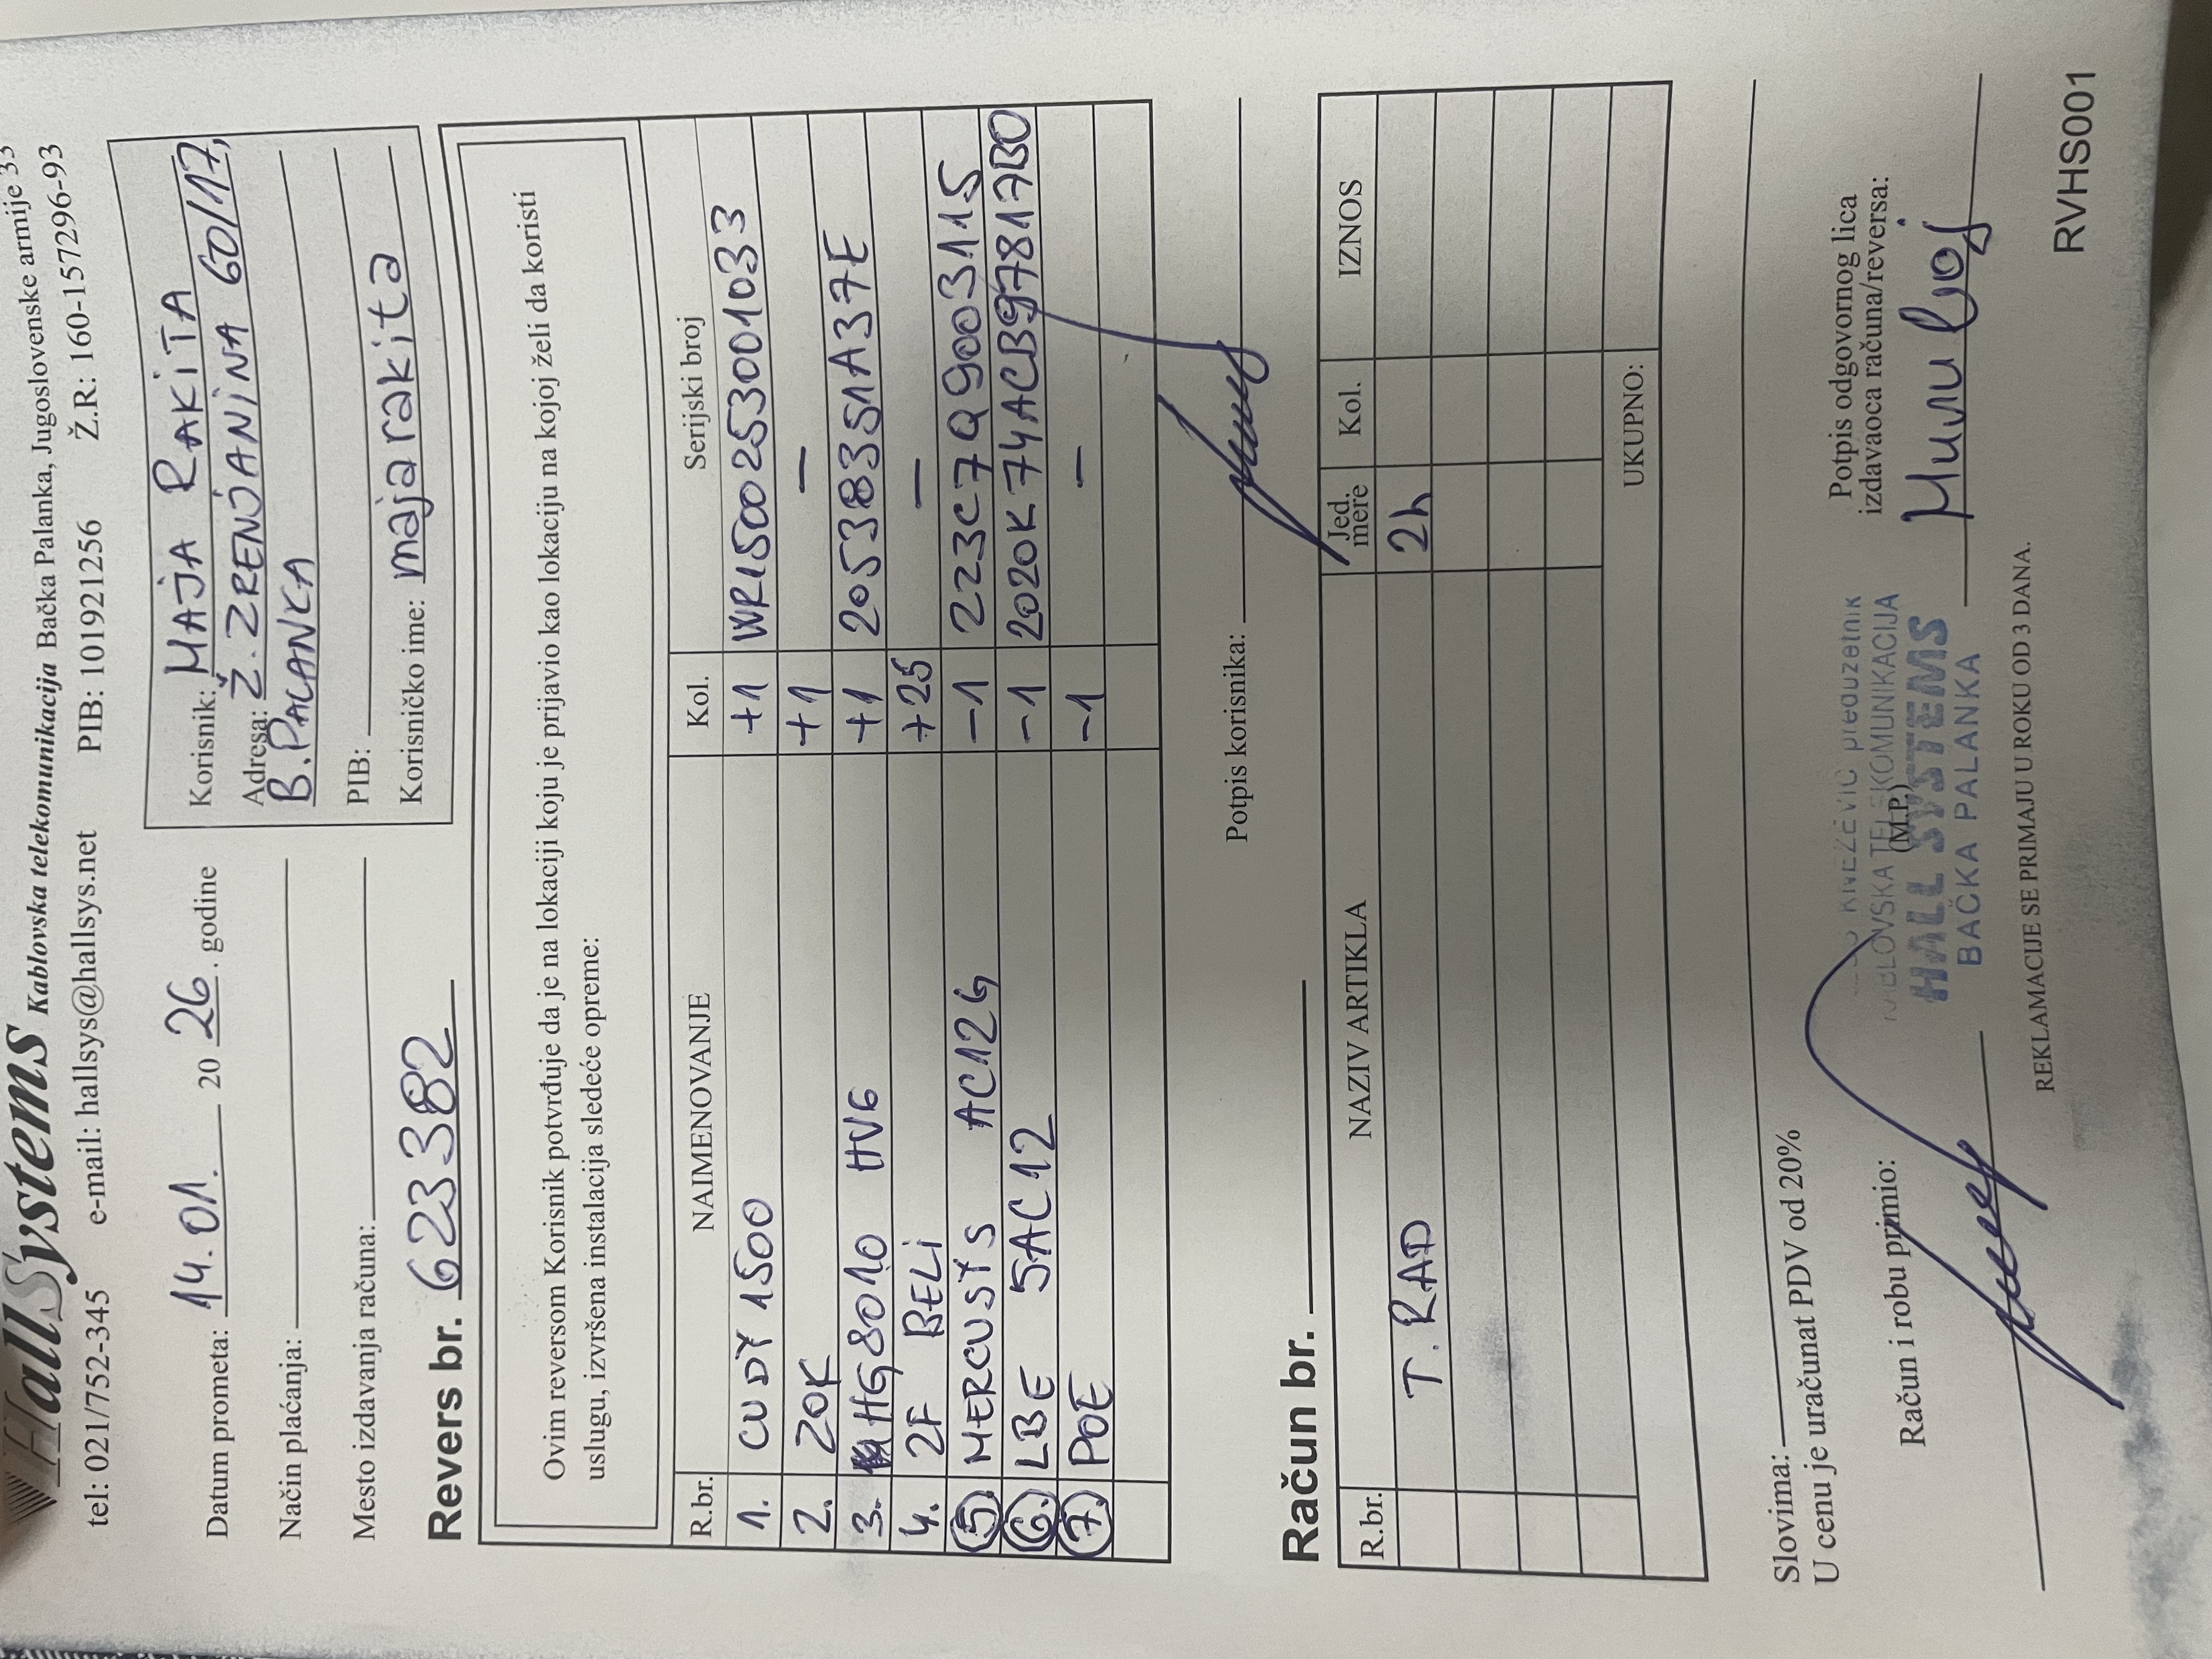 HallSystems Kablovska telekomunikacija Bačka Palanka, Jugoslovenske armije 33
tel: 021/752-345 e-mail: hallsys@hallsys.net PIB: 101921256 Ž.R: 160-157296-93
Datum prometa: 14.01. 20 26. godine
Način plaćanja:
Mesto izdavanja računa:
Korisnik: MAJA RAKITA
Adresa: Ž. ZRENJANINA 60/17,
B. PALANKA
PIB:
Korisničko ime: majarakita
Revers br. 623382
Ovim reversom Korisnik potvrđuje da je na lokaciji koju je prijavio kao lokaciju na kojoj želi da koristi
uslugu, izvršena instalacija sledeće opreme:
R.br. NAIMENOVANJE Kol. Serijski broj
1. CUDY 1500 +1 WR1500253001033
2. ZOK +1 –
3. HG8010 HV6 +1 2053B3S1A37E
4. 2F BELI +25 –
5. MERCUSYS AC12G -1 223C7Q9003115
6. LBE 5AC12 -1 2020K74ACB97817BO
7. POE -1 –
Potpis korisnika:
Račun br.
R.br. NAZIV ARTIKLA Jed. mere Kol. IZNOS
T. RAD 2h
UKUPNO:
Slovima:
U cenu je uračunat PDV od 20%
Račun i robu primio:
KNEŽEVIĆ preduzetnik
KABLOVSKA TELEKOMUNIKACIJA
(M.P.)
HALL SYSTEMS
BAČKA PALANKA
Potpis odgovornog lica
izdavaoca računa/reversa:
REKLAMACIJE SE PRIMAJU U ROKU OD 3 DANA.
RVHS001